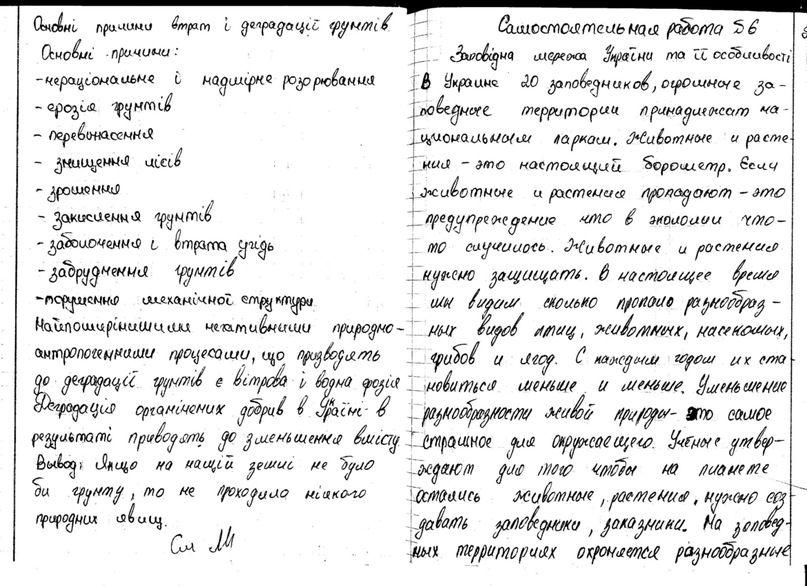 Основні причини втрат і деградації грунтів
Основні причини:
-нераціональне і надмірне розорювання
- ерозія грунтів
- перевипасення
- знищення лісів
- зрошення
- закислення грунтів
- заболочення і втрата угідь
- забруднення грунтів
-порушення механічної структури
Найпоширінишими негативними природно-
антропогенними процесами, що призводять
до деградації грунтів є вітрова і водна ерозія
Деградація органічених добрив в Україні в
результаті приводять до зменшення вмісту
Вывод: Якщо на нашій земші не було
би грунту, то не проходила ніякого
природних явищ.
Самостоятельная работа №6
Заповідна мережа України та її особливості
В Украине 20 заповедников, огромные за-
поведные территории принадлежат на-
циональным паркам. Животные и расте-
ния - это настоящий борометр. Если
животные и растения пропадают - это
предупреждение что в экологии что-
то случилось. Животные и растения
нужно защищать. В настоящее время
мы видим сколько пропало разнообраз-
ных видов птиц, животных, насекомых,
грибов и ягод. С каждым годом их ста-
новиться меньше и меньше. Уменьшение
разнообразности живой природы- это самое
страшное для окружаещего. Учёные утвер-
ждают для того чтобы на планете
остались животные, растения, нужно соз-
давать заповедники, заказники. На заповед-
ных территориях охроняется разнообразные